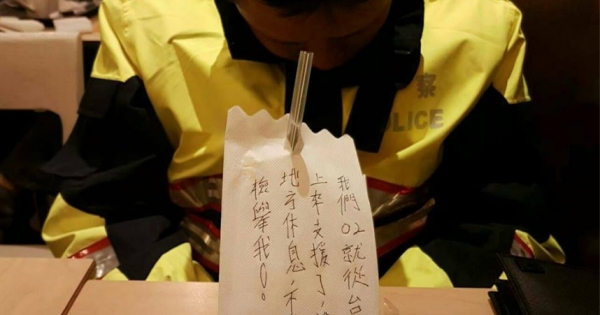 我們02就從台
上來支援了
地方休息
檢舉我!。
察
POLICE